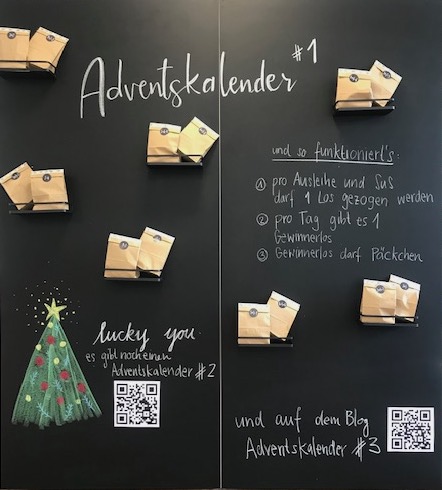 Adventskalender #1
und so funktioniert's:
① pro Ausleihe und SuS
darf 1 Los gezogen werden
② pro Tag gibt es 1
Gewinnerlos
③ Gewinnerlos darf Päckchen
lucky you
es gibt noch einen
Adventskalender #2
und auf dem Blog
Adventskalender #3